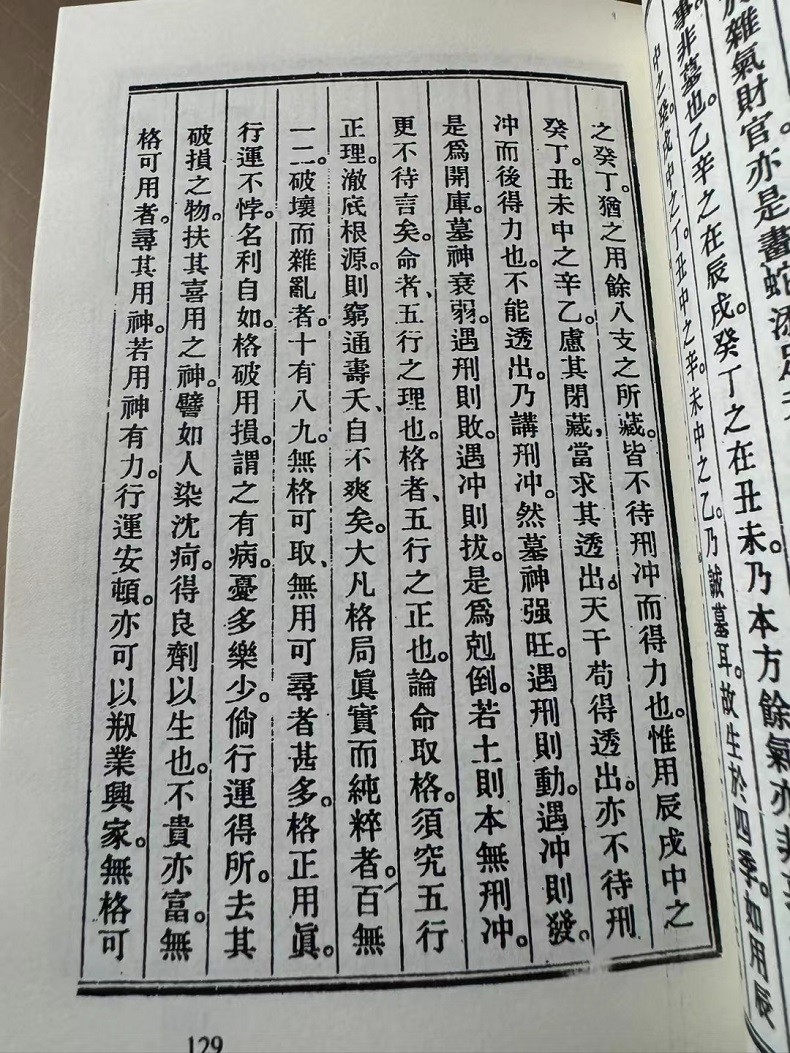 雜氣財官亦是畫蛇添足
事非墓也。乙辛之在辰戌。癸丁之在丑未。乃本方餘氣亦非
中之癸。戌中之丁。丑中之辛。未中之乙。乃誠墓耳。故生於四季。如用辰
之癸丁。猶之用餘八支之所藏。皆不待刑冲而得力也。惟用辰戌中之
癸丁。丑未中之辛乙。慮其閉藏，當求其透出。天干苟得透出。亦不待刑
冲而後得力也。不能透出。乃講刑冲。然墓神强旺。遇刑則動。遇冲則發。
是爲開庫。墓神衰弱。遇刑則敗。遇冲則拔。是爲剋倒。若土則本無刑冲。
更不待言矣。命者、五行之理也。格者、五行之正也。論命取格。須究五行
正理。澈底根源。則窮通壽夭、自不爽矣。大凡格局眞實而純粹者。百無
一二。破壞而雜亂者。十有八九。無格可取、無用可尋者甚多。格正用眞。
行運不悖。名利自如。格破用損。謂之有病。憂多樂少。倘行運得所。去其
破損之物。扶其喜用之神。譬如人染沈疴。得良劑以生也。不貴亦富。無
格可用者。尋其用神。若用神有力。行運安頓。亦可以剏業興家。無格可
129